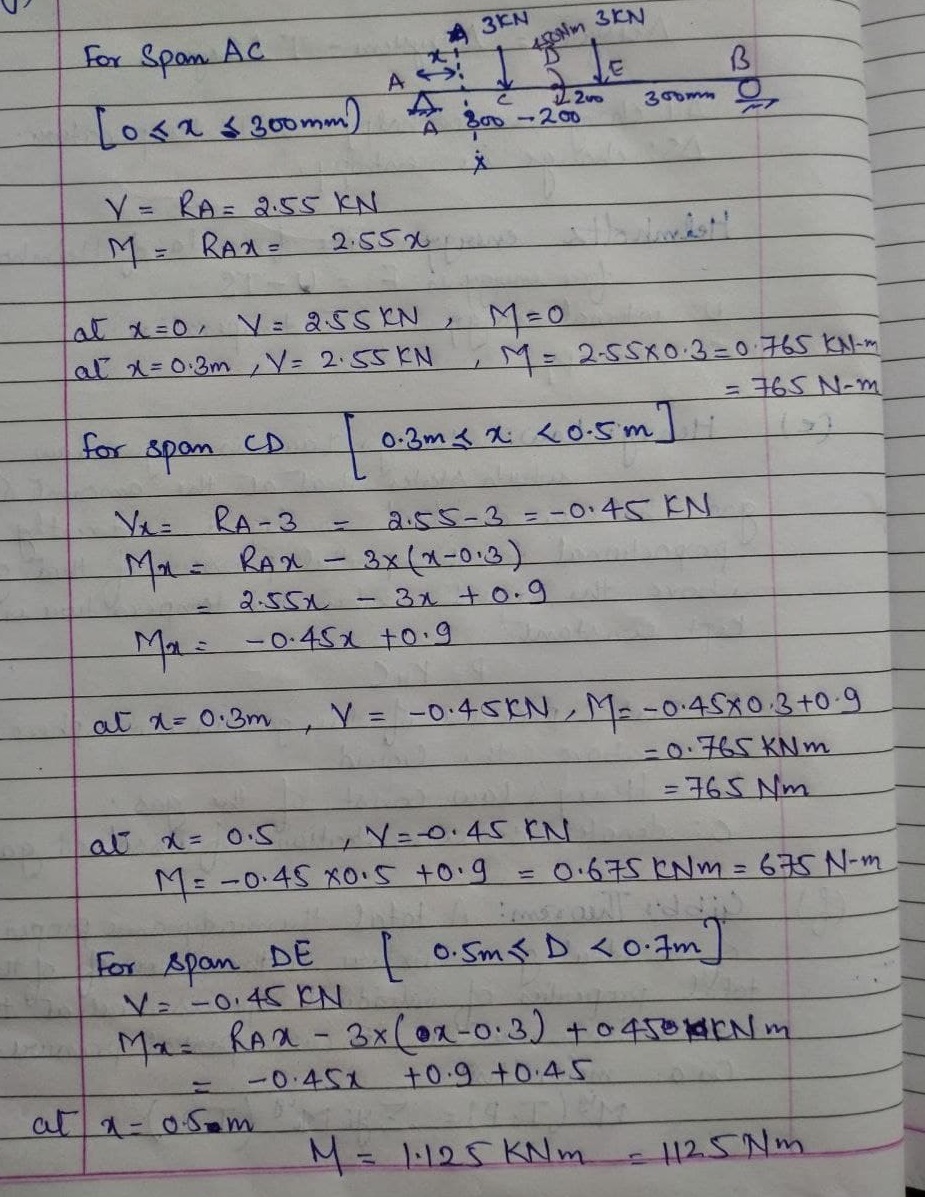 For Span AC
A 3KN 450Nm 3KN
x D E B
A C 200 300mm
A 300 - 200
[0 ≤ x ≤ 300mm)
x
V = RA = 2.55 KN
M = RAx = 2.55x
at x=0, V = 2.55KN, M=0
at x=0.3m, V= 2.55KN, M= 2.55x0.3=0.765 KN-m
= 765 N-m
for span CD [ 0.3m ≤ x < 0.5m]
Vx= RA-3 = 2.55-3 = -0.45 KN
Mx = RAx - 3x(x-0.3)
= 2.55x - 3x + 0.9
Mx = -0.45x +0.9
at x= 0.3m, V = -0.45KN, M= -0.45x0.3+0.9
= 0.765 KNm
= 765 Nm
at x= 0.5, V=-0.45 KN
M= -0.45 x0.5 +0.9 = 0.675 KNm = 675 N-m
For span DE [ 0.5m ≤ D < 0.7m]
V= -0.45 KN
Mx= RAx - 3x(x-0.3) + 0.450 KNm
= -0.45x +0.9 +0.45
at x= 0.5m
M = 1.125 KNm = 1125 Nm